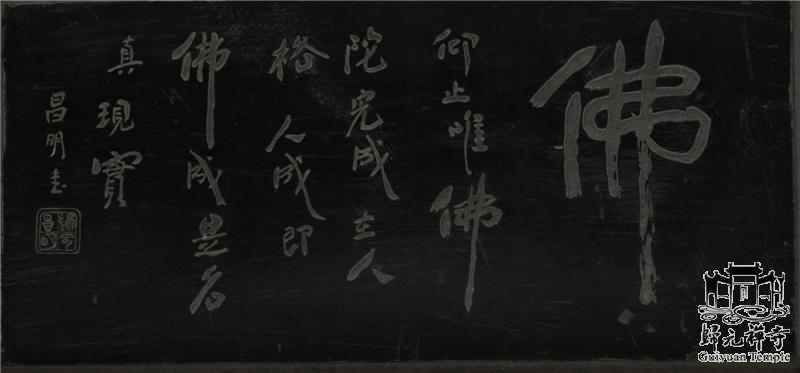 佛
仰止唯佛
陀完成在人
格人成即
佛成是名
真現實
昌明書
歸元禪寺
Guiyuan Temple